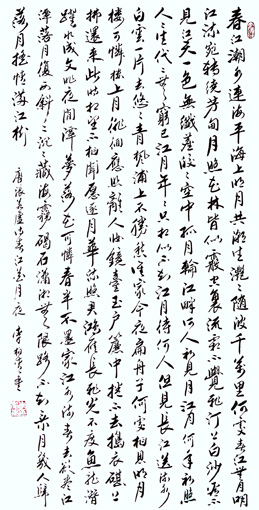 春江潮水連海平海上明月共潮生灩灩随波千萬里何處春江無月明
江流宛轉繞芳甸月照花林皆似霰空裏流霜不覺飛汀上白沙看不
見江天一色無纖塵皎皎空中孤月輪江畔何人初見月江月何年初照
人人生代代無窮已江月年年只相似不知江月待何人但見長江送流水
白雲一片去悠悠青楓浦上不勝愁誰家今夜扁舟子何處相思明月
樓可憐樓上月徘徊應照離人妝鏡臺玉户簾中捲不去搗衣砧上
拂還來此時相望不相聞願逐月華流照君鴻雁長飛光不度魚龍潛
躍水成文昨夜閒潭夢落花可憐春半不還家江水流春去欲盡江
潭落月復西斜斜月沉沉藏海霧碣石瀟湘無限路不知乘月幾人歸
落月搖情滿江樹
唐張若虛詩春江花月夜